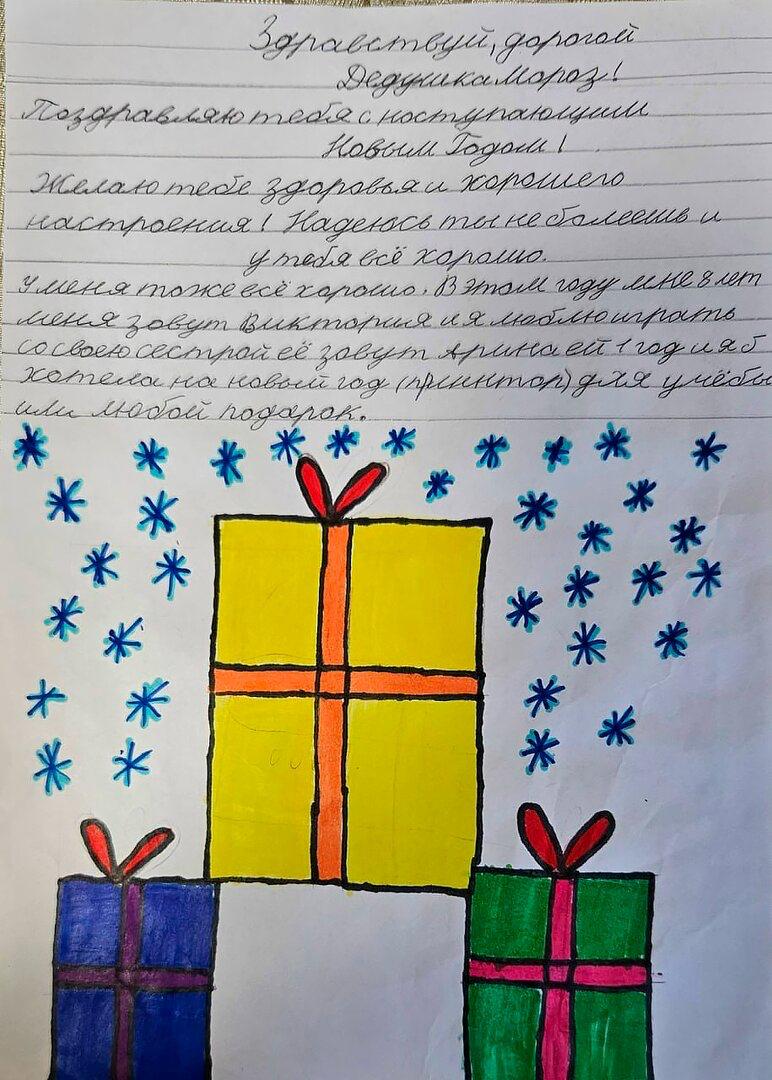 Здравствуй, дорогой
Дедушка Мороз!
Поздравляю тебя с наступающим
Новым Годом!
Желаю тебе здоровья и хорошего
настроения! Надеюсь ты не болеешь и
у тебя всё хорошо.
У меня тоже всё хорошо. В этом году мне 8 лет
меня зовут Виктория и я люблю играть
со своею сестрой её зовут Арина ей 1 год и я б
хотела на новый год (принтор) для учёбы
или любой подарок.